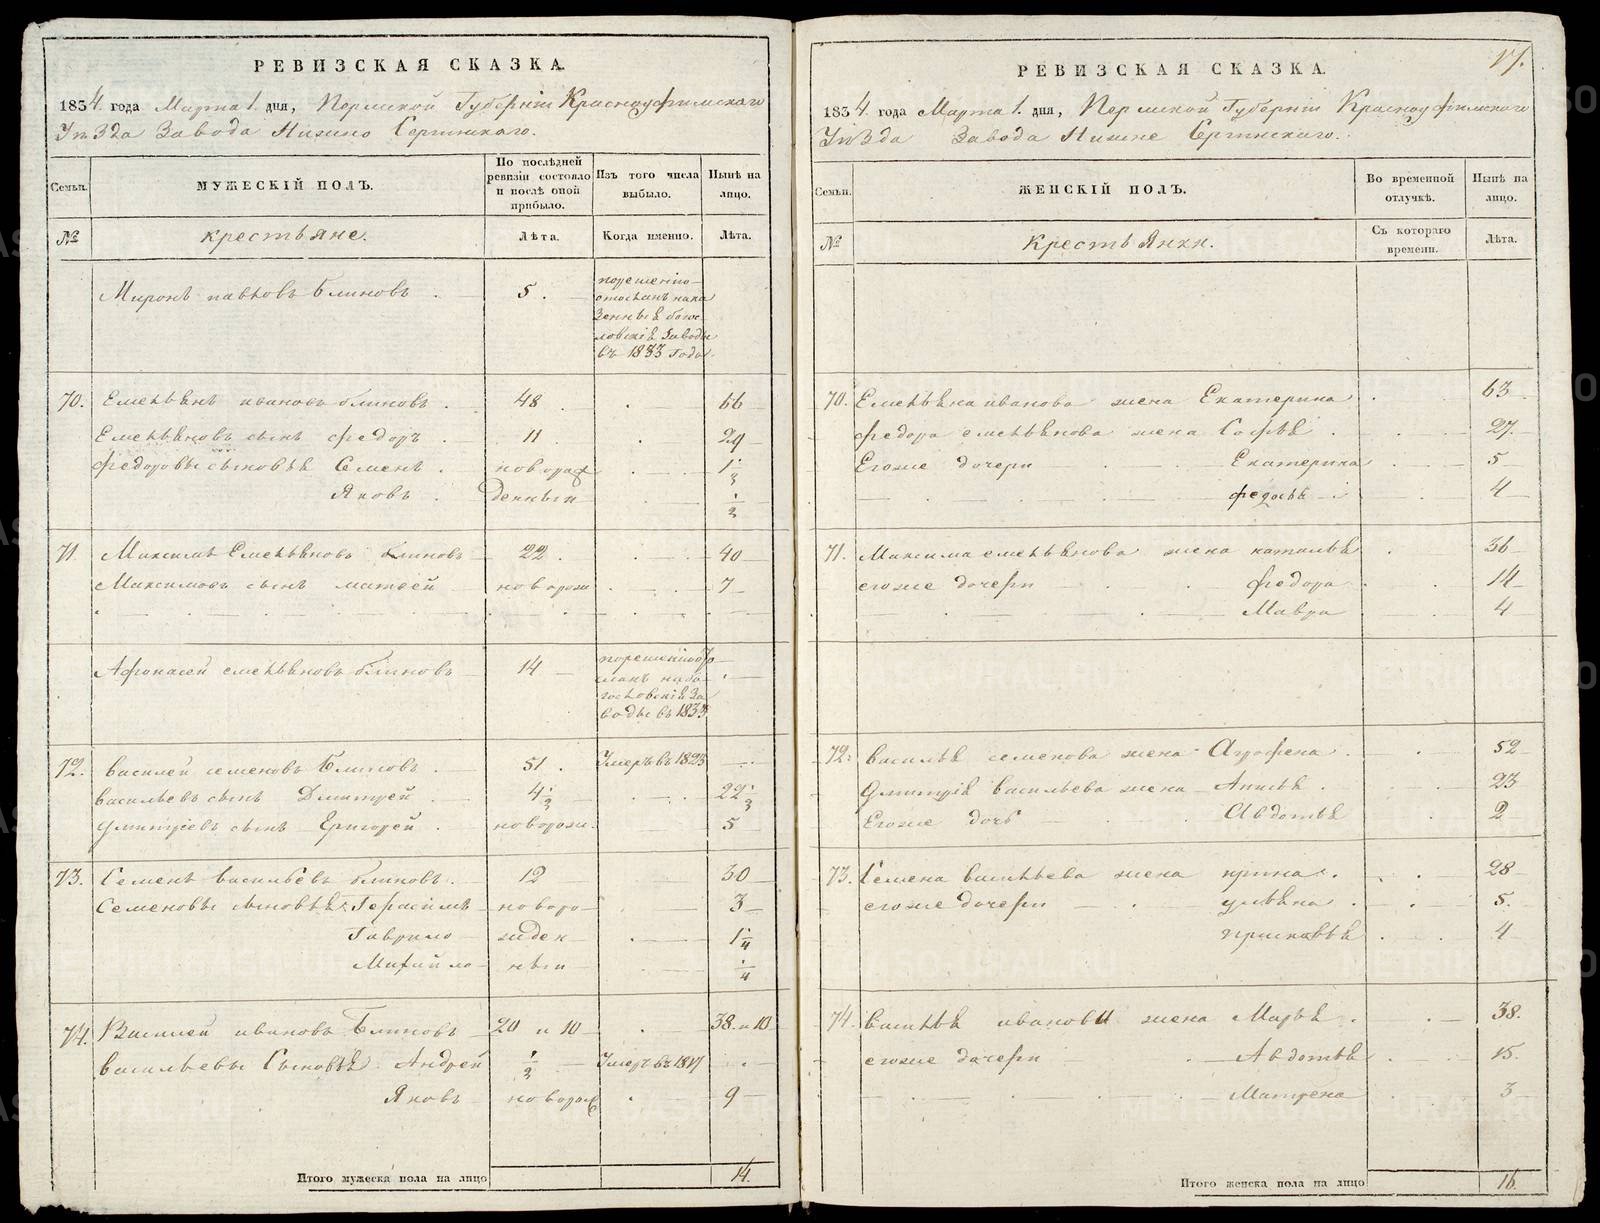 РЕВИЗСКАЯ СКАЗКА.
1834. года Марта 1. дня, Пермской Губернiи Красноуфимскаго
Уѣзда Завода Нижно Сергинскаго.
Семьи.
МУЖЕСКIЙ ПОЛЪ.
По послѣдней ревизiи состояло и послѣ оной прибыло.
Изъ того числа выбыло.
Нынѣ на лицо.
№
крестьяне.
Лѣта.
Когда именно.
Лѣта.
Миронъ павловъ Блиновъ 5.
порешенiю
отосланъ нака
зенныѣ богос
ловскiѣ заводы
въ 1833 года.
70. Емельянъ ивановъ блиновъ 48 66
Емельяновъ сынъ федоръ 11 29
федоровы сыновья Семенъ новорож 1 1/2
Яковъ денныи 1/2
71. Максимъ Емельяновъ блиновъ 22 40
Максимовъ сынъ матвей новорож 7
Афонасей емельяновъ блиновъ 14
порешенiю
сланъ на бо
гословскiѣ за
воды въ 1833
72. василей семеновъ Блиновъ 51 Умеръ въ 1823
васильевъ сынъ Дмитрей 4 1/2 22 1/2
дмитрiевъ сынъ Григорей новорож. 5
73. Семенъ васильевъ блиновъ 12 30
Семеновы сыновья Герасимъ новоро 3
Гаврило жден 1 1/4
Михайло ныи 1/4
74. Василей ивановъ Блиновъ 20 и 10 38. и 10
васильевы Сыновья Андрей 1/2 Умеръ въ 1817
Яковъ новорож 9
Итого мужеска пола на лицо 14.
17.
РЕВИЗСКАЯ СКАЗКА.
1834. года Марта 1. дня, Пермской Губернiи Красноуфимскаго
Уѣзда Завода Нижне Сергинскаго.
Семьи.
ЖЕНСКIЙ ПОЛЪ.
Во временной отлучкѣ.
Нынѣ на лицо.
№
Крестьянки.
Съ котораго времени.
Лѣта.
70. Емельяна иванова жена Екатерина 63
федора емельянова жена Софья 27.
Егоже дочери Екатерина 5
федосья 4
71. Максима емельянова жена наталья 36
егоже дочери федора 14
Мавра 4
72. василья семенова жена Агрофена 52
дмитрiя васильева жена Анисья 23
Егоже дочь Авдотья 2
73. Семена васильева жена ирина 28
егоже дочери ульяна 5.
прасковья 4
74. василья иванова жена Марья 38.
егоже дочери Авдотья 15.
Матрена 3
Итого женска пола на лицо 16.
METRIKI.GASO-URAL.RU